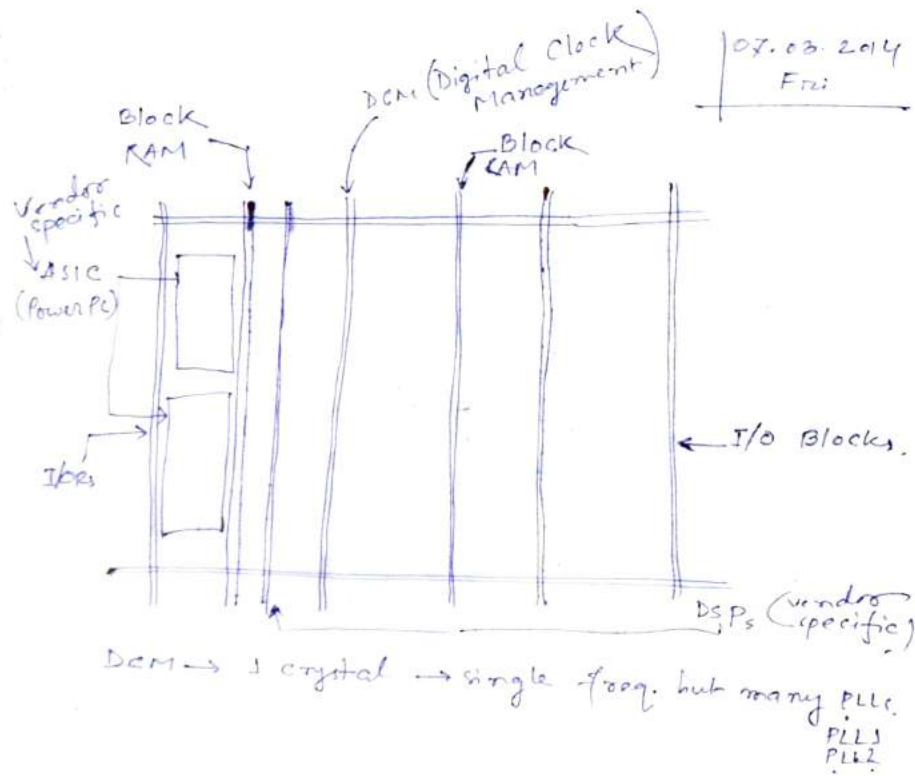 07.03.2014
Fri
DCM (Digital Clock
Management)
Block
RAM
Block
RAM
Vendor
specific
ASIC
(PowerPc)
I/O Blocks.
DSPs (vendor
specific)
DCM → 1 crystal → single freq. but many PLLs.
PLL1
PLL2